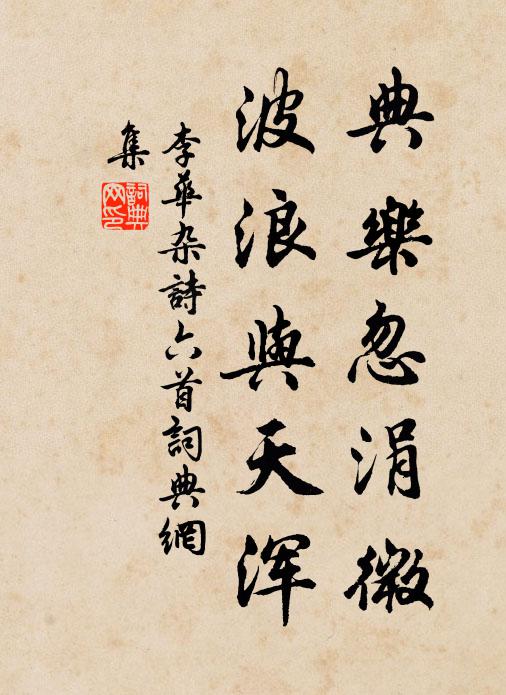 典樂忽涓微
波浪與天浑
李華杂詩六首詞典網
集
詞典
网印